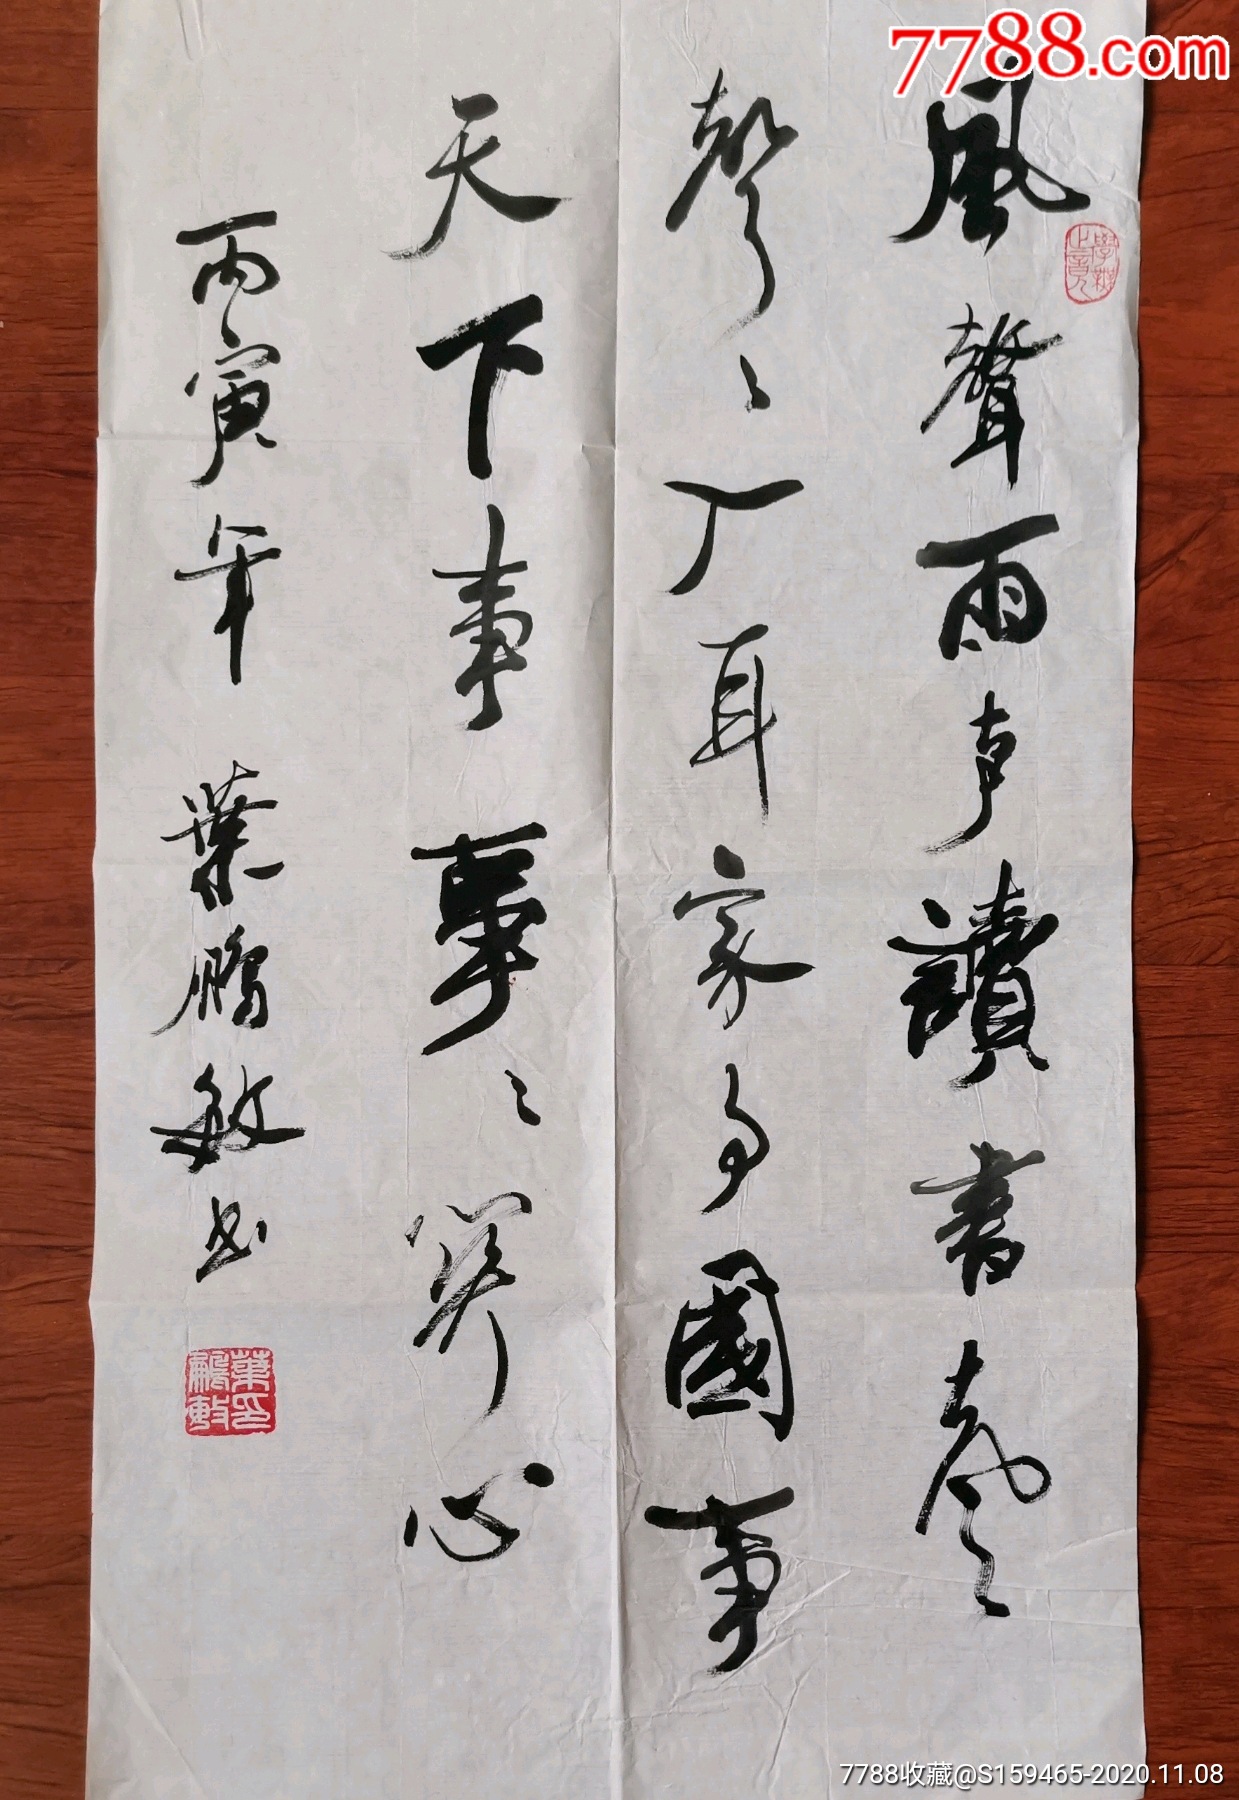 7788.com
風聲雨声讀書声
聲〻入耳家事國事
天下事事〻關心
丙寅年 葉鵬敏书
葉鵬敏印
7788收藏@S159465-2020.11.08